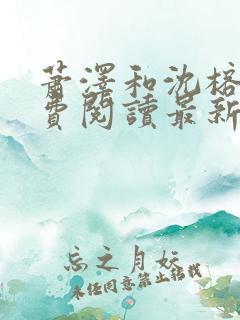 萧澤和沈榕
费閱讀最新
忘之月妖
未经同意禁止转载